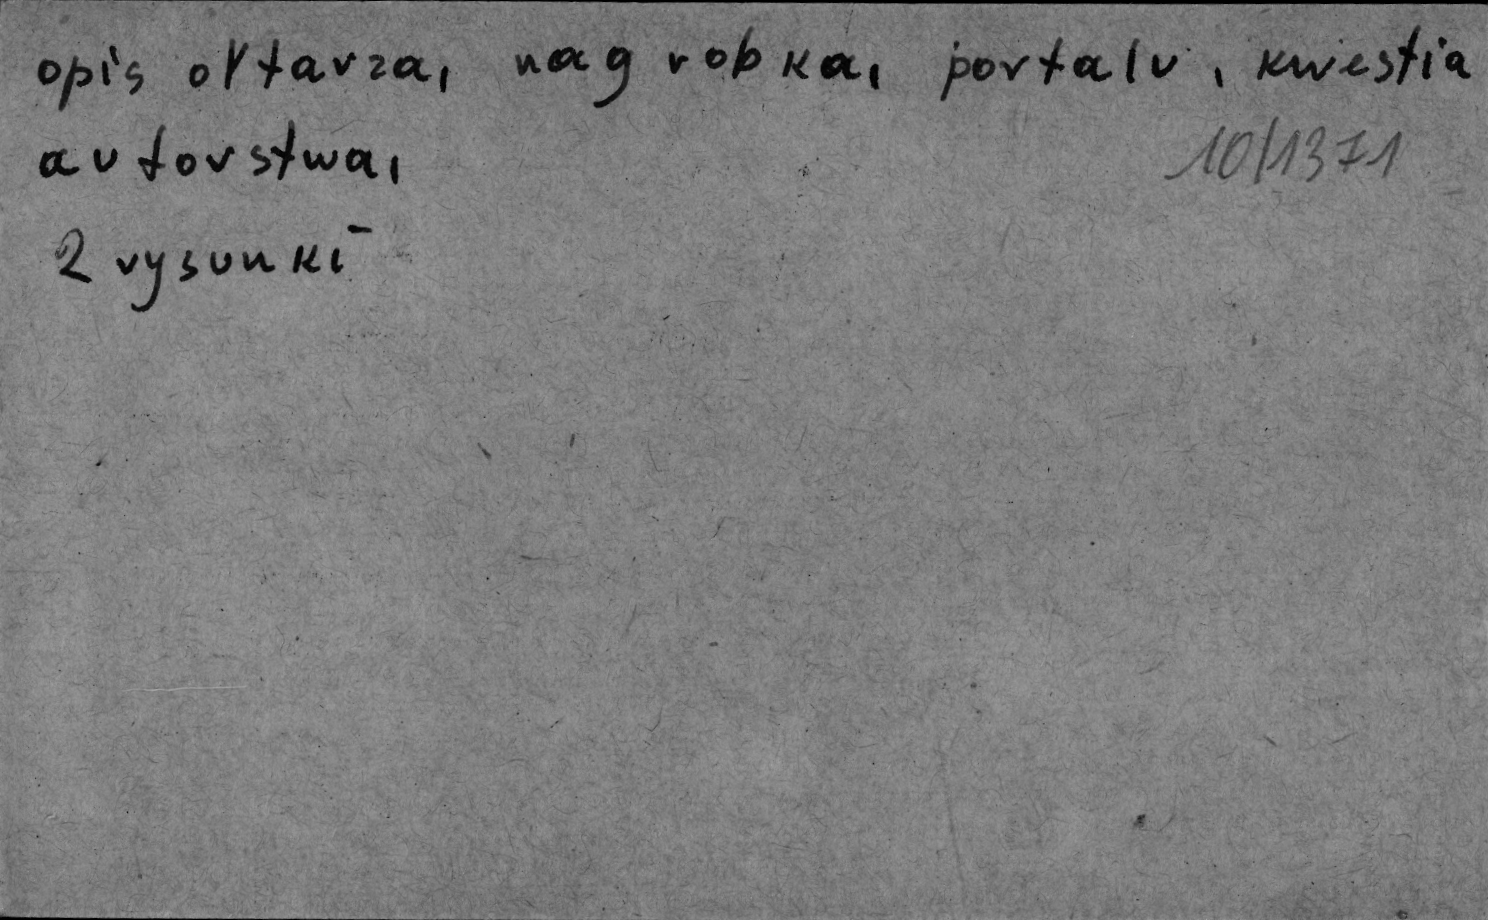 opis ołtarza, nagrobka, portalu, kwestia
autorstwa,
10/1371
2 rysunki